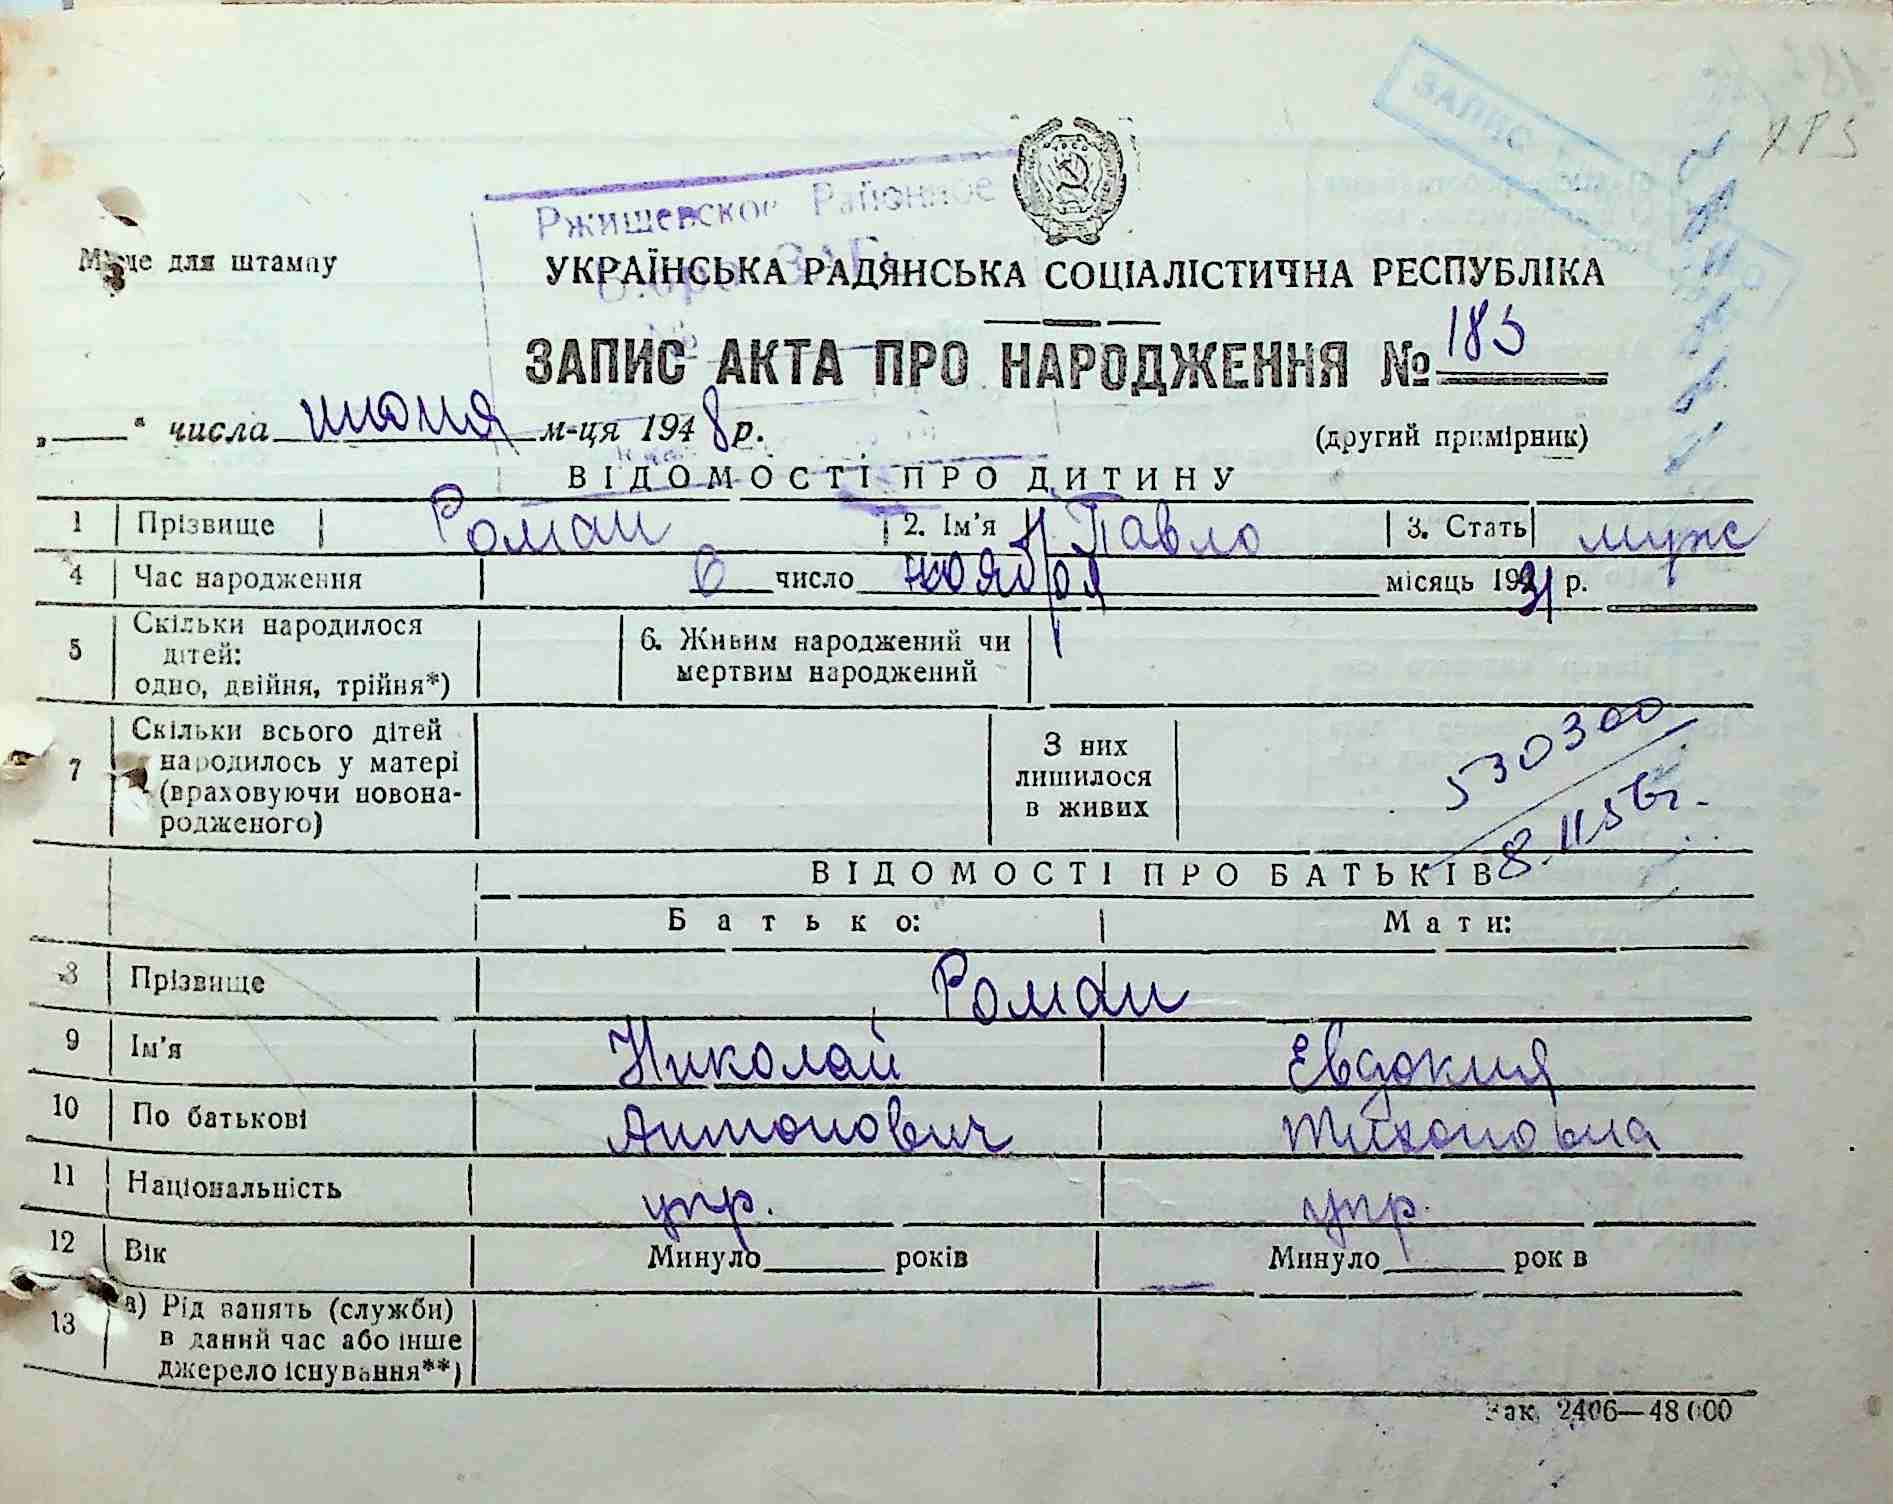 Ржищевское Районное
Бюро ЗАГС
Місце для штампу
УКРАЇНСЬКА РАДЯНСЬКА СОЦІАЛІСТИЧНА РЕСПУБЛІКА
ЗАПИС АКТА ПРО НАРОДЖЕННЯ № 183
„ “ числа июня м-ця 1948 р.
(другий примірник)
ВІДОМОСТІ ПРО ДИТИНУ
1 Прізвище Роман 2. Ім'я Павло 3. Стать муж
4 Час народження 6 число ноября місяць 1931 р.
5 Скільки народилося дітей: одно, двійня, трійня*) 6. Живим народжений чи мертвим народжений
7 Скільки всього дітей народилось у матері (враховуючи новонародженого) З них лишилося в живих
530300
8.11.56г.
ВІДОМОСТІ ПРО БАТЬКІВ
Батько: Мати:
8 Прізвище Роман
9 Ім'я Николай Евдокия
10 По батькові Антонович Тихоновна
11 Національність укр. укр.
12 Вік Минуло років Минуло рок в
13 а) Рід занять (служби) в даний час або інше джерело існування**)
Зак. 2406—48 000